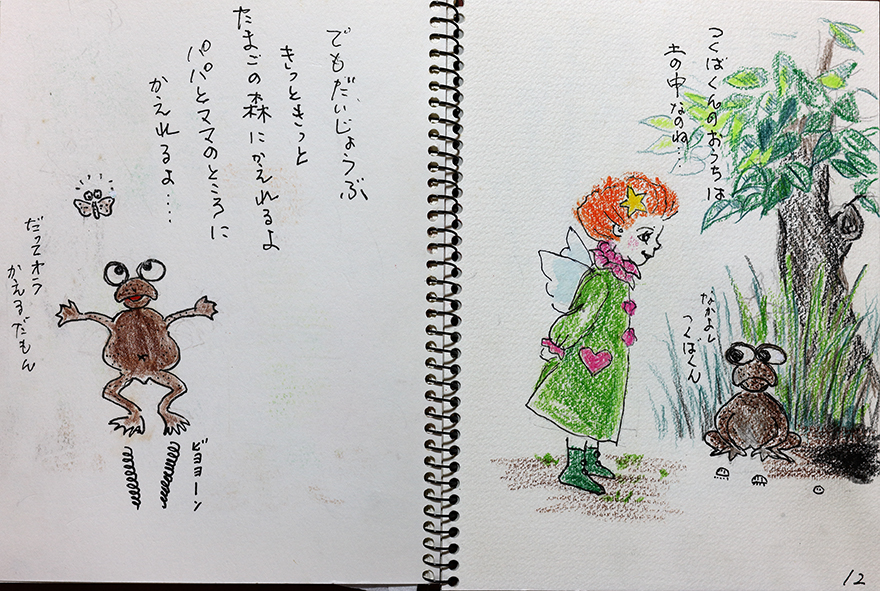 つくばくんのおうちは
土の中なのね…
なかよし
つくばくん
12
でもだいじょうぶ
きっときっと
たまごの森にかえれるよ
パパとママのところに
かえれるよ…
だってオラ
かえるだもん
ビヨヨーン